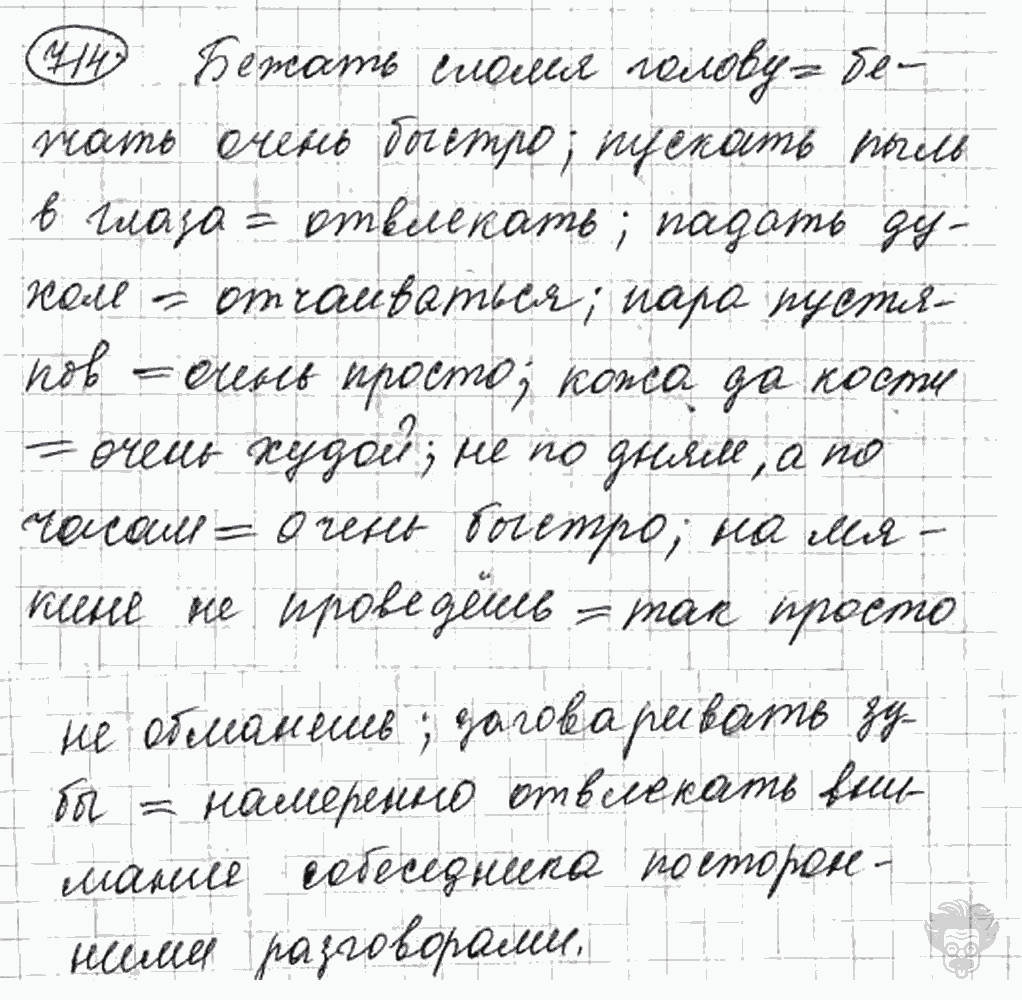 714. Бежать сломя голову = бе-
жать очень быстро; пускать пыль
в глаза = отвлекать; падать ду-
хом = отчаиваться; пара пустя-
ков = очень просто; кожа да кости
= очень худой; не по дням, а по
часам = очень быстро; на мя-
кине не проведёшь = так просто
не обманешь; заговаривать зу-
бы = намеренно отвлекать вни-
мание собеседника посторон-
ними разговорами.